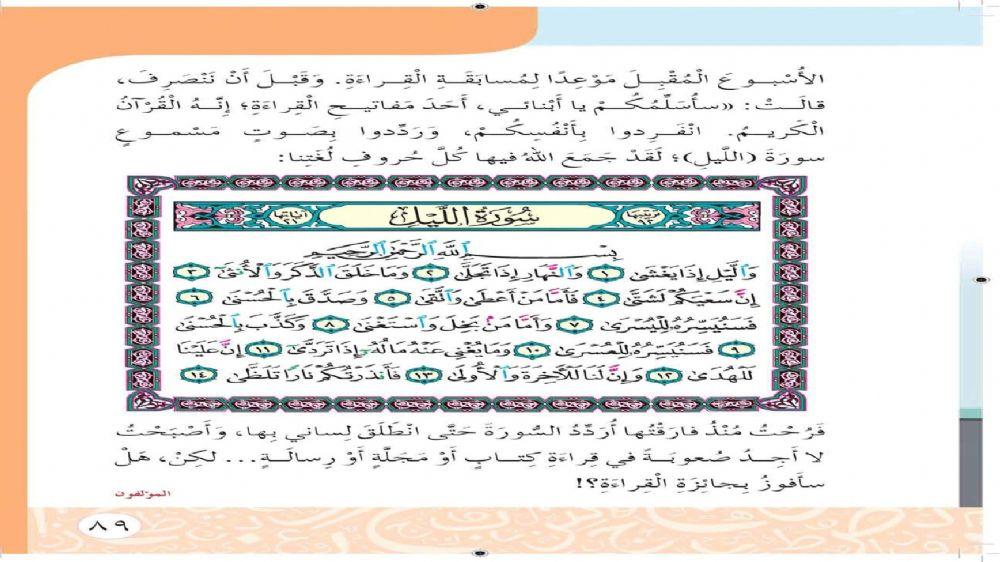 الأُسْبوعِ الْمُقْبِلَ مَوْعِدًا لِمُسابَقَةِ الْقِراءَةِ. وَقَبْلَ أَنْ نَنْصَرِفَ،
قالَتْ: «سأُسَلِّمُكُمْ يا أَبْنائي، أَحَدَ مَفاتيحِ الْقِراءَةِ؛ إِنَّهُ الْقُرْآنُ
الْكَريمُ. انْفَرِدوا بِأَنْفُسِكُمْ، وَرَدِّدوا بِصَوتٍ مَسْموعٍ
سورَةَ (اللَّيلِ)؛ لَقَدْ جَمَعَ اللهُ فيها كُلَّ حُروفِ لُغَتِنا:
سُورَةُ اللَّيْلِ
بِسْمِ ٱللَّهِ ٱلرَّحْمَٰنِ ٱلرَّحِيمِ
وَٱلَّيْلِ إِذَا يَغْشَىٰ ١ وَٱلنَّهَارِ إِذَا تَجَلَّىٰ ٢ وَمَا خَلَقَ ٱلذَّكَرَ وَٱلْأُنثَىٰ ٣
إِنَّ سَعْيَكُمْ لَشَتَّىٰ ٤ فَأَمَّا مَنْ أَعْطَىٰ وَٱتَّقَىٰ ٥ وَصَدَّقَ بِٱلْحُسْنَىٰ ٦
فَسَنُيَسِّرُهُۥ لِلْيُسْرَىٰ ٧ وَأَمَّا مَنۢ بَخِلَ وَٱسْتَغْنَىٰ ٨ وَكَذَّبَ بِٱلْحُسْنَىٰ
٩ فَسَنُيَسِّرُهُۥ لِلْعُسْرَىٰ ١٠ وَمَا يُغْنِي عَنْهُ مَالُهُۥٓ إِذَا تَرَدَّىٰٓ ١١ إِنَّ عَلَيْنَا
لَلْهُدَىٰ ١٢ وَإِنَّ لَنَا لَلْءَاخِرَةَ وَٱلْأُولَىٰ ١٣ فَأَنذَرْتُكُمْ نَارًا تَلَظَّىٰ ١٤
فَرُحْتُ مُنْذُ فارَقْتُها أُرَدِّدُ السّورَةَ حَتّى انْطَلَقَ لِساني بِها، وَأَصْبَحْتُ
لا أَجِدُ صُعوبَةً في قِراءَةِ كِتابٍ أَوْ مَجَلَّةٍ أَوْ رِسالَةٍ... لكِنْ، هَلْ
سأَفوزُ بِجائِزَةِ الْقِراءَةِ؟!
المؤلفون
٨٩